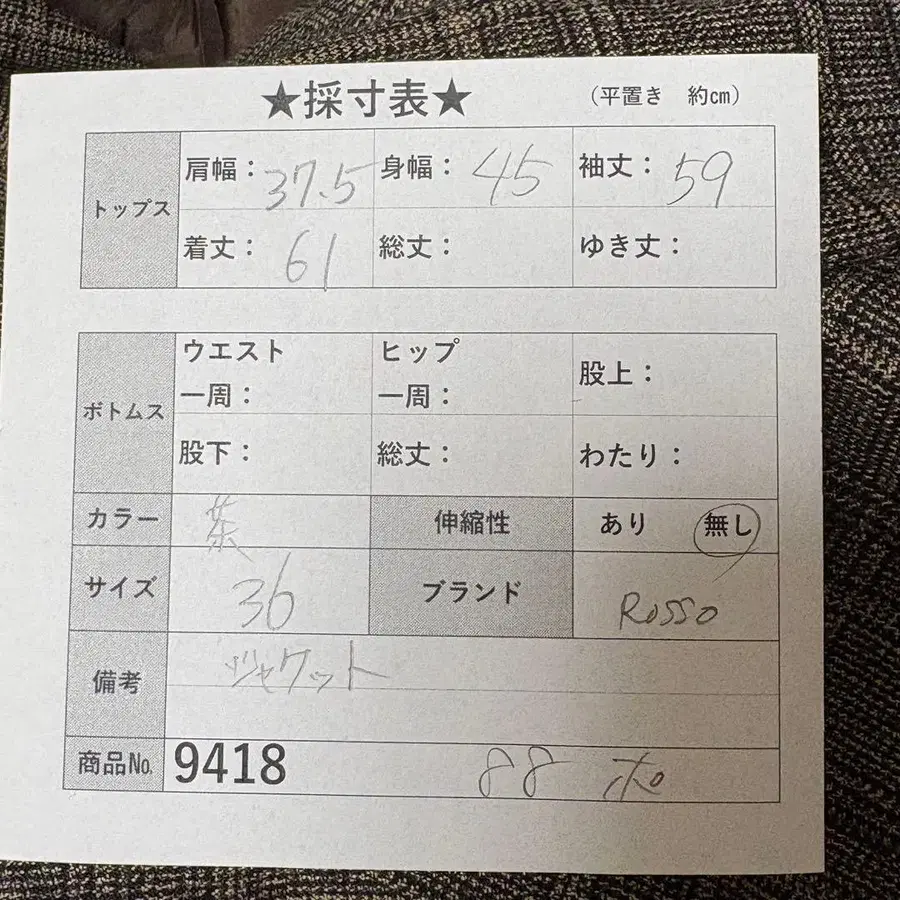 ★採寸表★ (平置き 約cm)
トップス
肩幅：37.5 身幅：45 袖丈：59
着丈：61 総丈： ゆき丈：
ボトムス
ウエスト一周： ヒップ一周： 股上：
股下： 総丈： わたり：
カラー 茶 伸縮性 あり 無し
サイズ 36 ブランド Rosso
備考 ジャケット
商品No. 9418 88 ポ